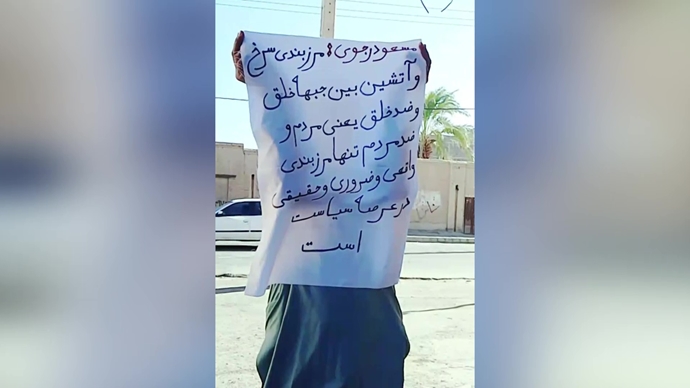 مسعود رجوی: مرزبندی سرخ
و آتشین بین جبههٔ خلق
و ضد خلق یعنی مردم و
ضد مردم تنها مرزبندی
واقعی و ضروری و حقیقی
در عرصهٔ سیاست
است